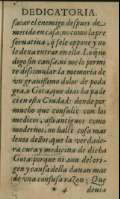 DEDICATORIA.
sacar el enemigo despues de
metido en casa, no como la pre
seruatiua, q̃ se le oppone y no
le dexa entrar en ella. Lo qual
digo sin causa, ni me lo permi
te dissimular la memoria de
vn grauissimo dolor de poda
gra, o Gota, que dias ha pade
ci en essa Ciudad: donde por
mucho que consulte con los
medicos, assi antiguos como
modernos, no halle cosa mas
lexos dezir, que la verdade
ra cura y medicina de dicha
Gota: porque ni aun del ori
gen y causa della dauan mas
de vna confusa razon: Que
deuia